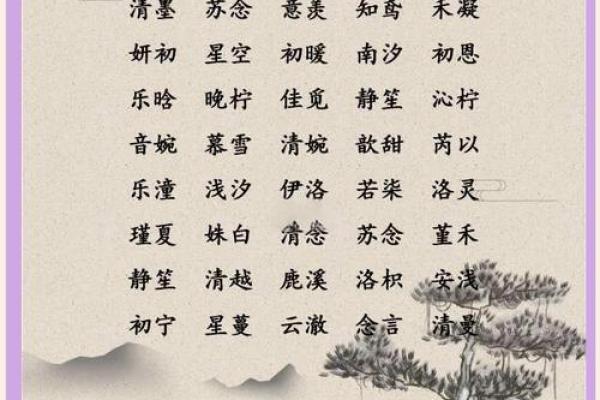 清墨 苏念 意羡 知鸢 禾凝
妍初 星空 初暖 南汐 初恩
乐晗 晚柠 佳觅 静笙 沁柠
音婉 慕雪 清婉 歆甜 芮以
乐潼 浅汐 伊洛 若柒 洛灵
瑾夏 姝白 清念 苏念 堇禾
静笙 清越 鹿溪 洛枳 安浅
初宁 星蔓 云澈 念言 清曼